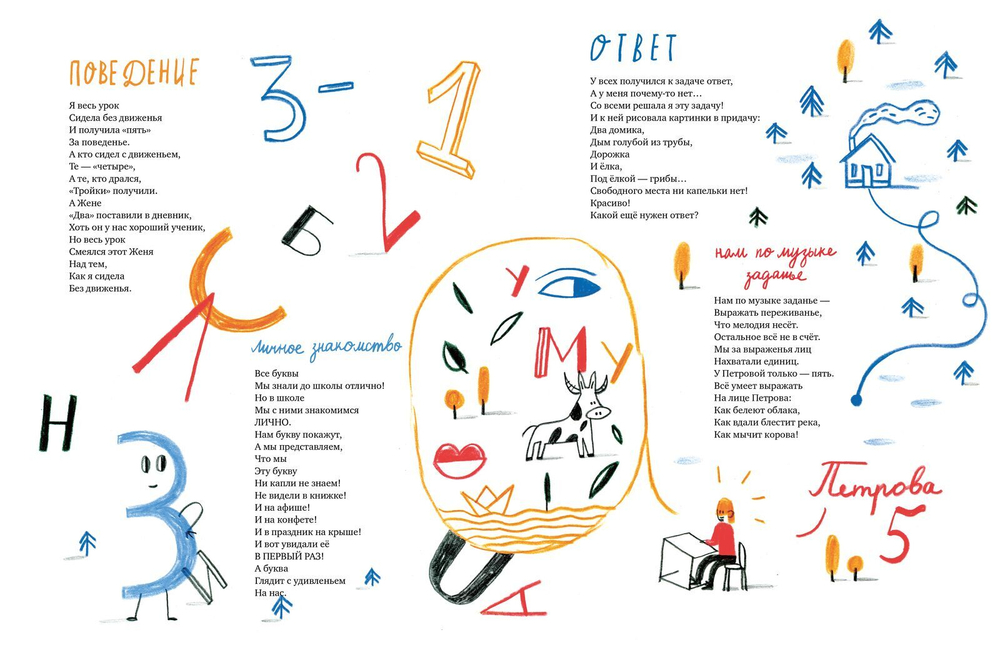 ПОВЕДЕНИЕ
Я весь урок
Сидела без движенья
И получила «пять»
За поведенье.
А кто сидел с движеньем,
Те — «четыре»,
А те, кто дрался,
«Тройки» получили.
А Жене
«Два» поставили в дневник,
Хоть он у нас хороший ученик,
Но весь урок
Смеялся этот Женя
Над тем,
Как я сидела
Без движенья.
3-
1
2
Б
С
Н
З
И
Личное знакомство
Все буквы
Мы знали до школы отлично!
Но в школе
Мы с ними знакомимся
ЛИЧНО.
Нам букву покажут,
А мы представляем,
Что мы
Эту букву
Ни капли не знаем!
Не видели в книжке!
И на афише!
И на конфете!
И в праздник на крыше!
И вот увидали её
В ПЕРВЫЙ РАЗ!
А буква
Глядит с удивленьем
На нас.
У
М
У
А
ОТВЕТ
У всех получился к задаче ответ,
А у меня почему-то нет…
Со всеми решала я эту задачу!
И к ней рисовала картинки в придачу:
Два домика,
Дым голубой из трубы,
Дорожка
И ёлка,
Под ёлкой — грибы…
Свободного места ни капельки нет!
Красиво!
Какой ещё нужен ответ?
нам по музыке
заданье
Нам по музыке заданье —
Выражать переживанье,
Что мелодия несёт.
Остальное всё не в счёт.
Мы за выраженья лиц
Нахватали единиц.
У Петровой только — пять.
Всё умеет выражать
На лице Петрова:
Как белеют облака,
Как вдали блестит река,
Как мычит корова!
Петрова
5